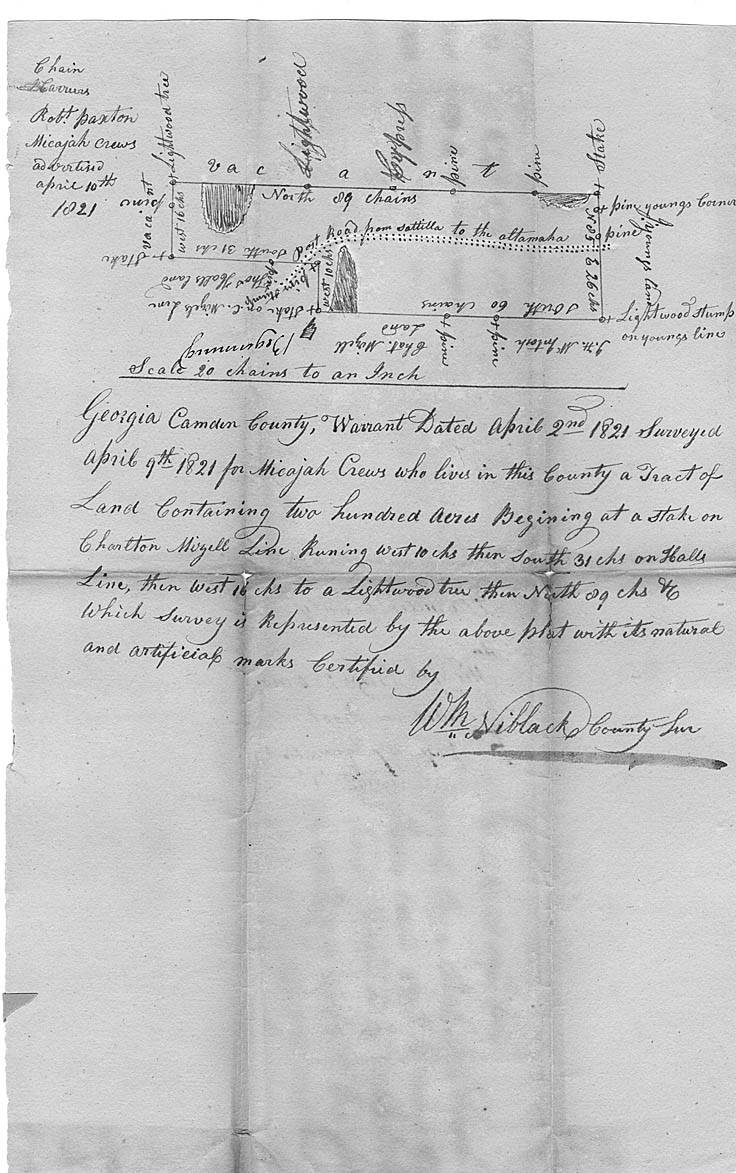 Chain
Carriers
Robt. paxton
Micajah Crews
advertised
april 10th
1821
pine
vacant
Stake
west 16 chs
Lightwood tree
vacant
Lightwood
Cyphers
pine
pine
Stake
North 89 chains
pine youngs Corner
pine
youngs land
Road from sattilla to the altamaha
Road
South 31 chs
Thos Halls land
pine stump
west 10 chs
Stake on C. Mizels Line
Begenning
Chat. Mizell
Land
pine
pine
South 60 chains
J. H. McIntosh
E 26 chs
Lightwood stump
on youngs line
Scale 20 chains to an Inch
Georgia Camden County, Warrant Dated April 2nd 1821 Surveyed
April 9th 1821 for Micajah Crews who lives in this County a Tract of
Land Containing two hundred Acres Begining at a stake on
Charlton Mizell Line Runing West 10 chs then South 31 chs on Halls
Line, then West 16 chs to a Lightwood tree then North 89 chs &c
Which Survey is Represented by the above plat with its natural
and artificial marks Certified by
Wm Niblack County Sur